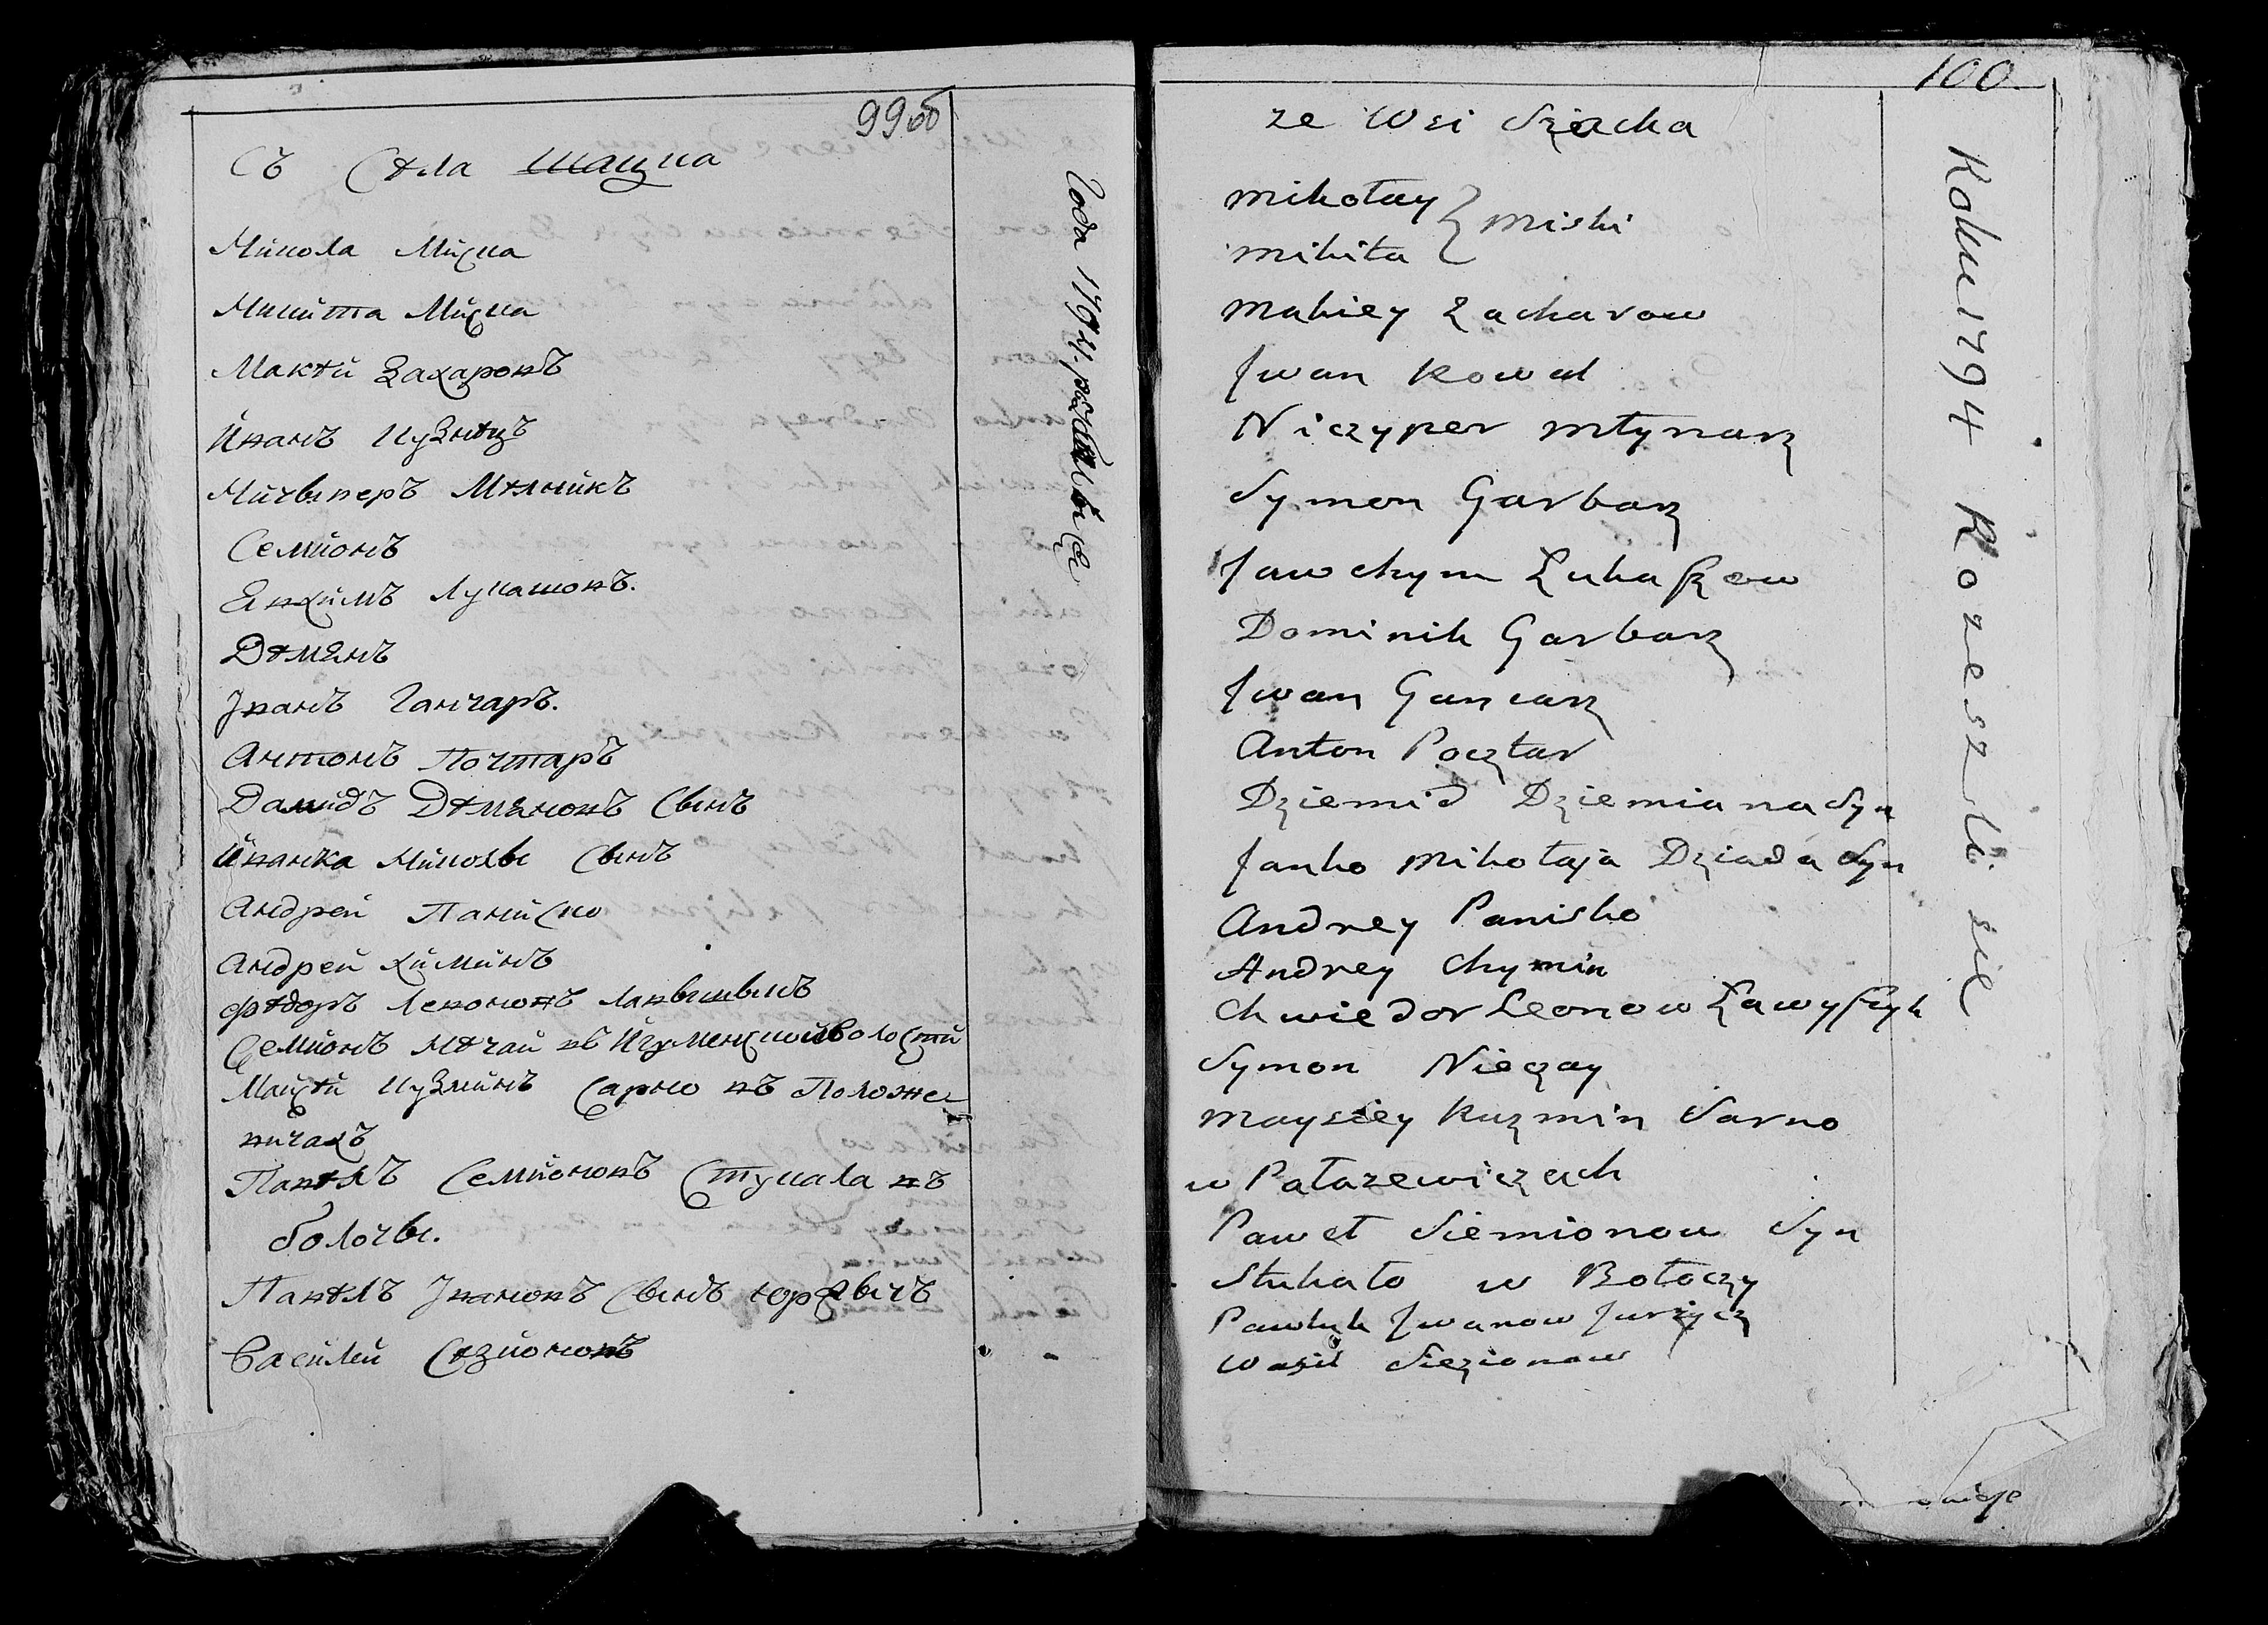 99об
Съ Сѣла Шацка
Микола Миска
Микита Миска
Макѣй Захаровъ
Иванъ Кузнѣцъ
Ничыперъ Мѣлникъ
Семионъ
Явхимъ Лукашовъ.
Дѣмянъ
Іванъ Ганчаръ.
Антонъ Почтаръ
Дамидъ Дѣмяновъ Сынъ
Иванка Миколы Сынъ
Андрей Паниско
Андрей Химинъ
Фѣдоръ Левоновъ
Семионъ Нѣчай въ Игуменской Волости
Майсѣй Кузминъ Сарно въ Положе
вичахъ
Павѣлъ Семионовъ Стукала въ
Болочы.
Павѣлъ Івановъ Сынъ Юрзычъ
Василей Сѣзионовъ
Года 1794. разышлися
100.
ze Wsi Szacka
Mikołay } Miski
Mikita
Makiey Zacharow
Jwan Kowal
Niczyper Młynarz
Symon Garbarz
Jawchym Łukaszow
Dominik Garbarz
Jwan Gancarz
Anton Pocztar
Dziemid Dziemiana Syn
Janko Mikołaja Dziada Syn
Andrey Panisko
Andrey Chymin
Chwiedor Leonow Ławyszyk
Symon Nieczay
Maysiey Kuzmin Sarno
w Pałazewiczach
Paweł Siemionow Syn
Stukało w Bołoczy
Pawluk Jwanow Jurzycz
Wasil Siezionow
Roku 1794 Rozeszli się